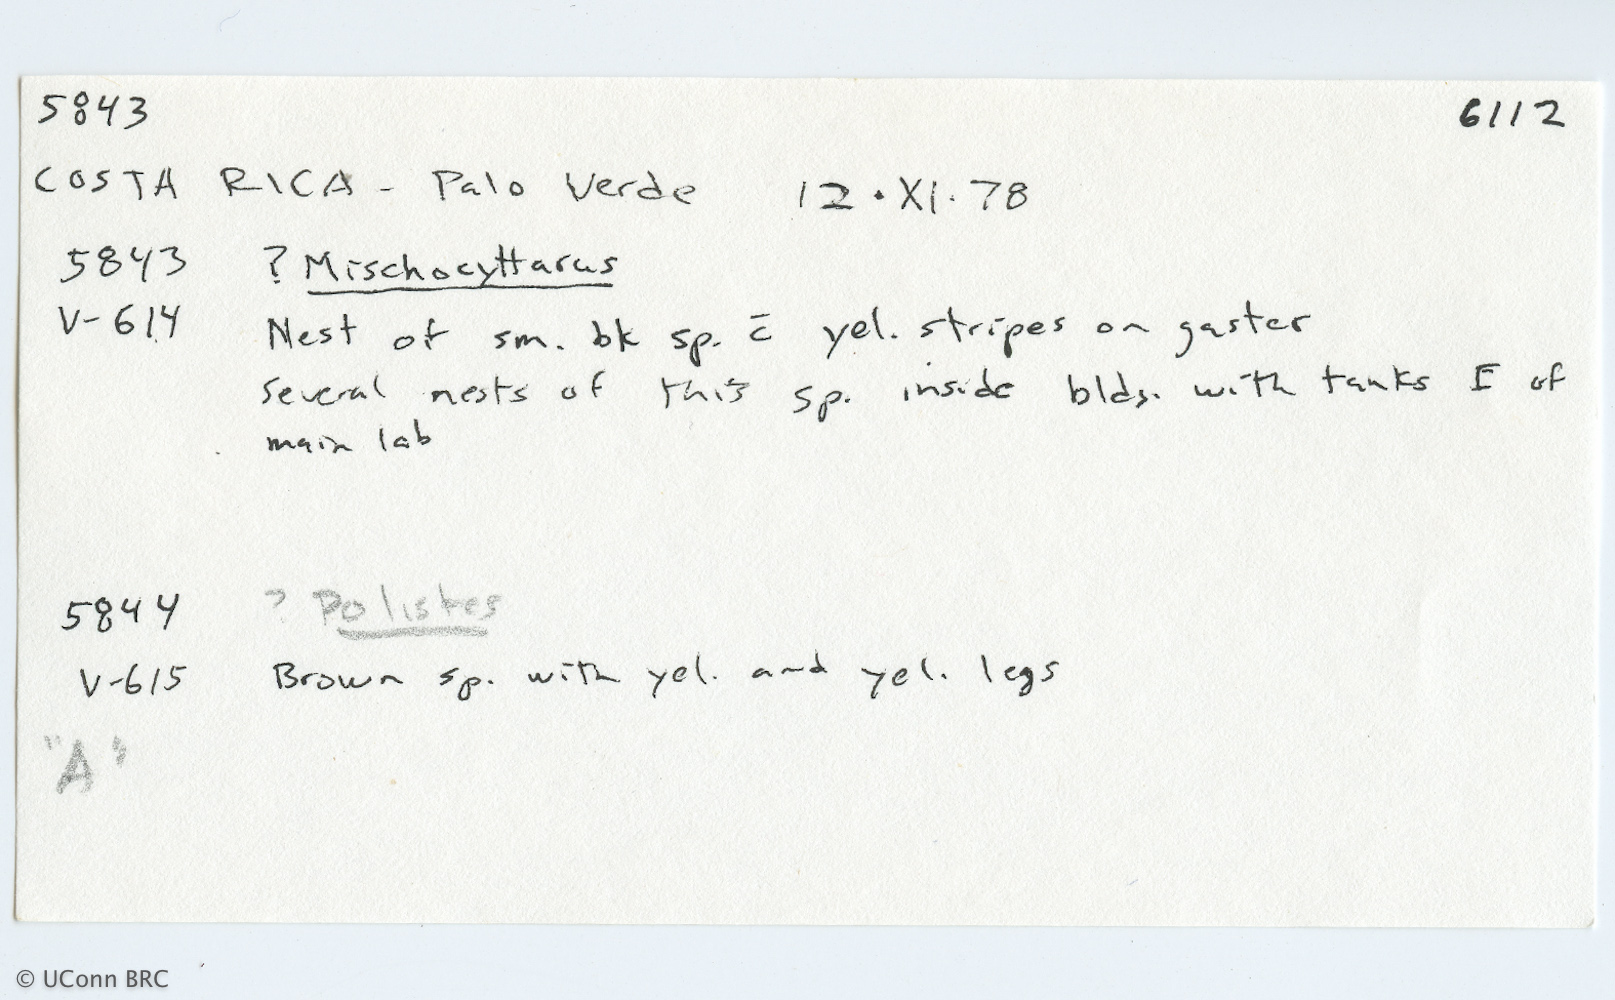 5843 6112
COSTA RICA - Palo Verde 12·XI·78
5843 ? Mischocyttarus
V-614 Nest of sm. bk sp. c̄ yel. stripes on gaster
several nests of this sp. inside blds. with tanks E of
main lab
5844 ? Polistes
V-615 Brown sp. with yel. and yel. legs
"A"
© UConn BRC